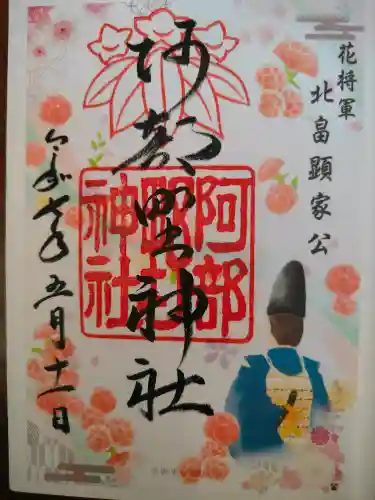 花将軍
北畠顕家公
阿部野神社
阿部野神社
令和七年五月十一日